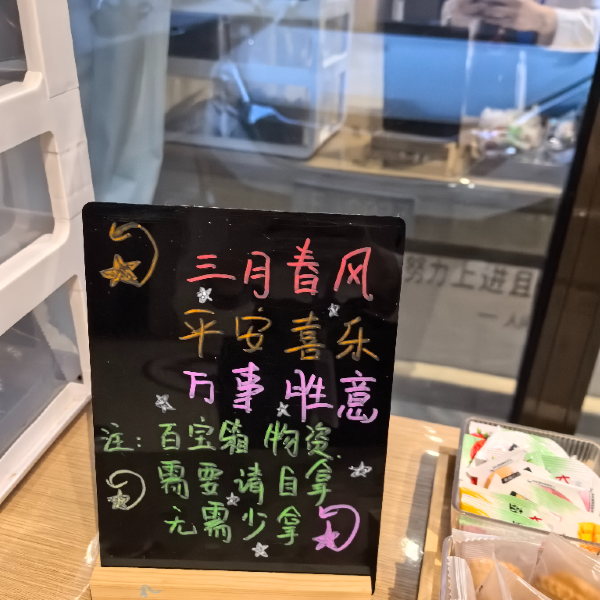 三月春风
平安喜乐
万事胜意
注: 百宝箱物资
需要请自拿
无需少拿
努力上进且